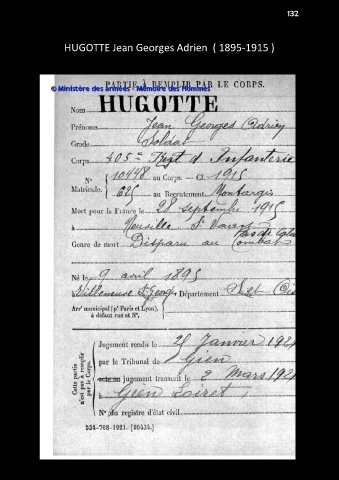 132
HUGOTTE Jean Georges Adrien ( 1895-1915 )
PARTIE À REMPLIR PAR LE CORPS.
© Ministère des armées - Mémoire des Hommes
Nom HUGOTTE
Prénoms Jean Georges Adrien
Grade Soldat
Corps 405e Regt d'Infanterie
N° 10448 au Corps. — Cl. 1915
Matricule. 625 au Recrutement Montargis
Mort pour la France le 28 septembre 1915
à Neuville St Vaast Pas de Calais
Genre de mort Disparu au Combat
Né le 9 avril 1895
Villeneuve St Georges Département Set Oi
Arrt municipal (pr Paris et Lyon),
à défaut rue et N°.
Cette partie n'est pas à remplir par le Corps.
Jugement rendu le 25 Janvier 192
par le Tribunal de Gien
acte ou jugement transcrit le 2 Mars 192
à Gien Loiret
N° du registre d'état civil
534-708-1921. [26434.]